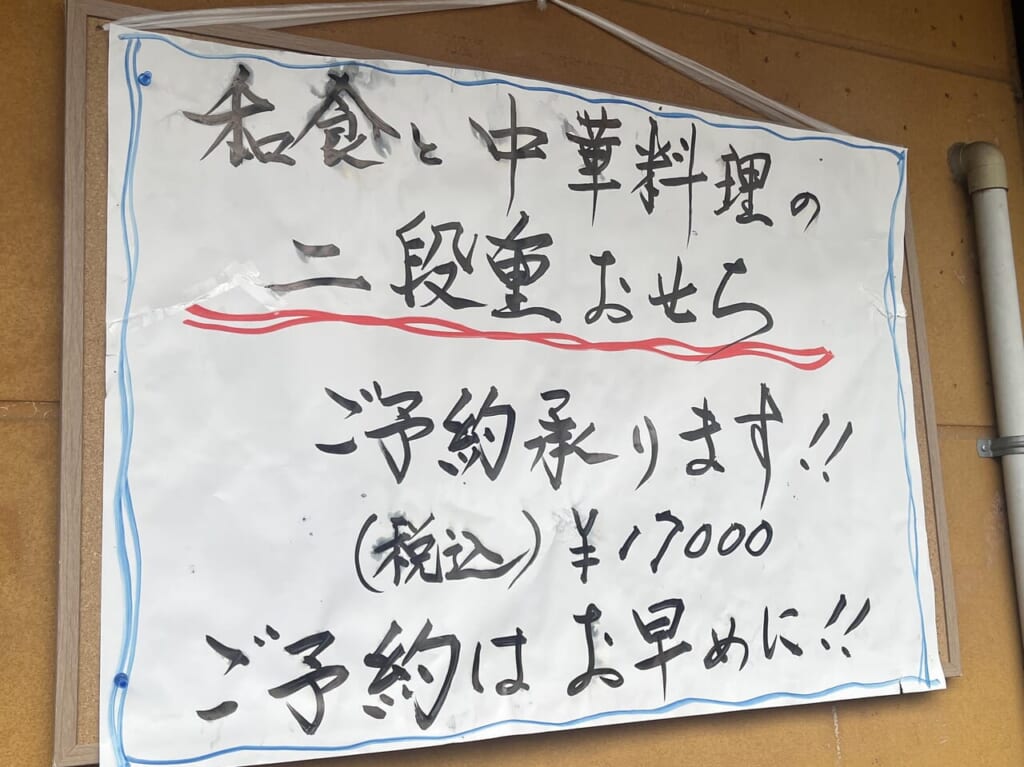 和食と中華料理の
二段重おせち
ご予約承ります!!
(税込)¥17000
ご予約はお早めに!!